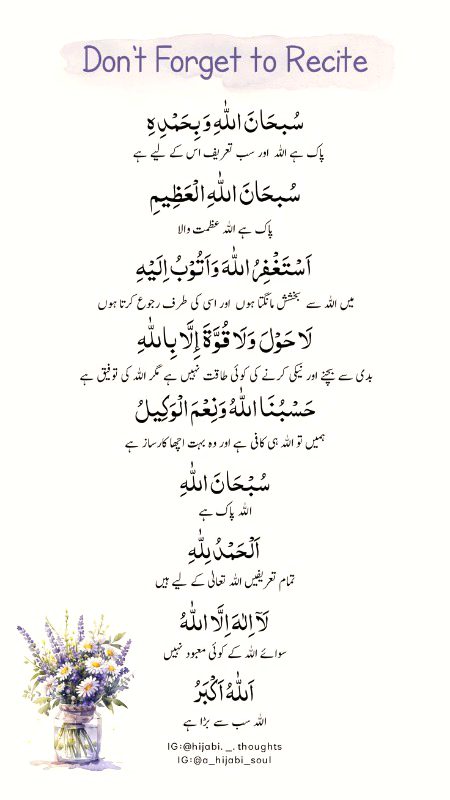 Don't Forget to Recite
سُبحَانَ اللّٰهِ وَبِحَمْدِهِ
پاک ہے اللہ اور سب تعریف اس کے لیے ہے
سُبحَانَ اللّٰهِ الْعَظِيمِ
پاک ہے اللہ عظمت والا
اَسْتَغْفِرُ اللّٰهَ وَاَتُوْبُ اِلَيْهِ
میں اللہ سے بخشش مانگتا ہوں اور اسی کی طرف رجوع کرتا ہوں
لَا حَوْلَ وَلَا قُوَّةَ إِلَّا بِاللّٰهِ
بدی سے بچنے اور نیکی کرنے کی کوئی طاقت نہیں ہے مگر اللہ کی توفیق ہے
حَسْبُنَا اللّٰهُ وَنِعْمَ الْوَكِيلُ
ہمیں تو اللہ ہی کافی ہے اور وہ بہت اچھا کارساز ہے
سُبْحَانَ اللّٰهِ
اللہ پاک ہے
اَلْحَمْدُ لِلّٰهِ
تمام تعریفیں اللہ تعالٰی کے لیے ہیں
لَآ اِلٰهَ اِلَّا اللّٰهُ
سوائے اللہ کے کوئی معبود نہیں
اَللّٰهُ اَكْبَرُ
اللہ سب سے بڑا ہے
IG:@hijabi._.thoughts
IG:@a_hijabi_soul